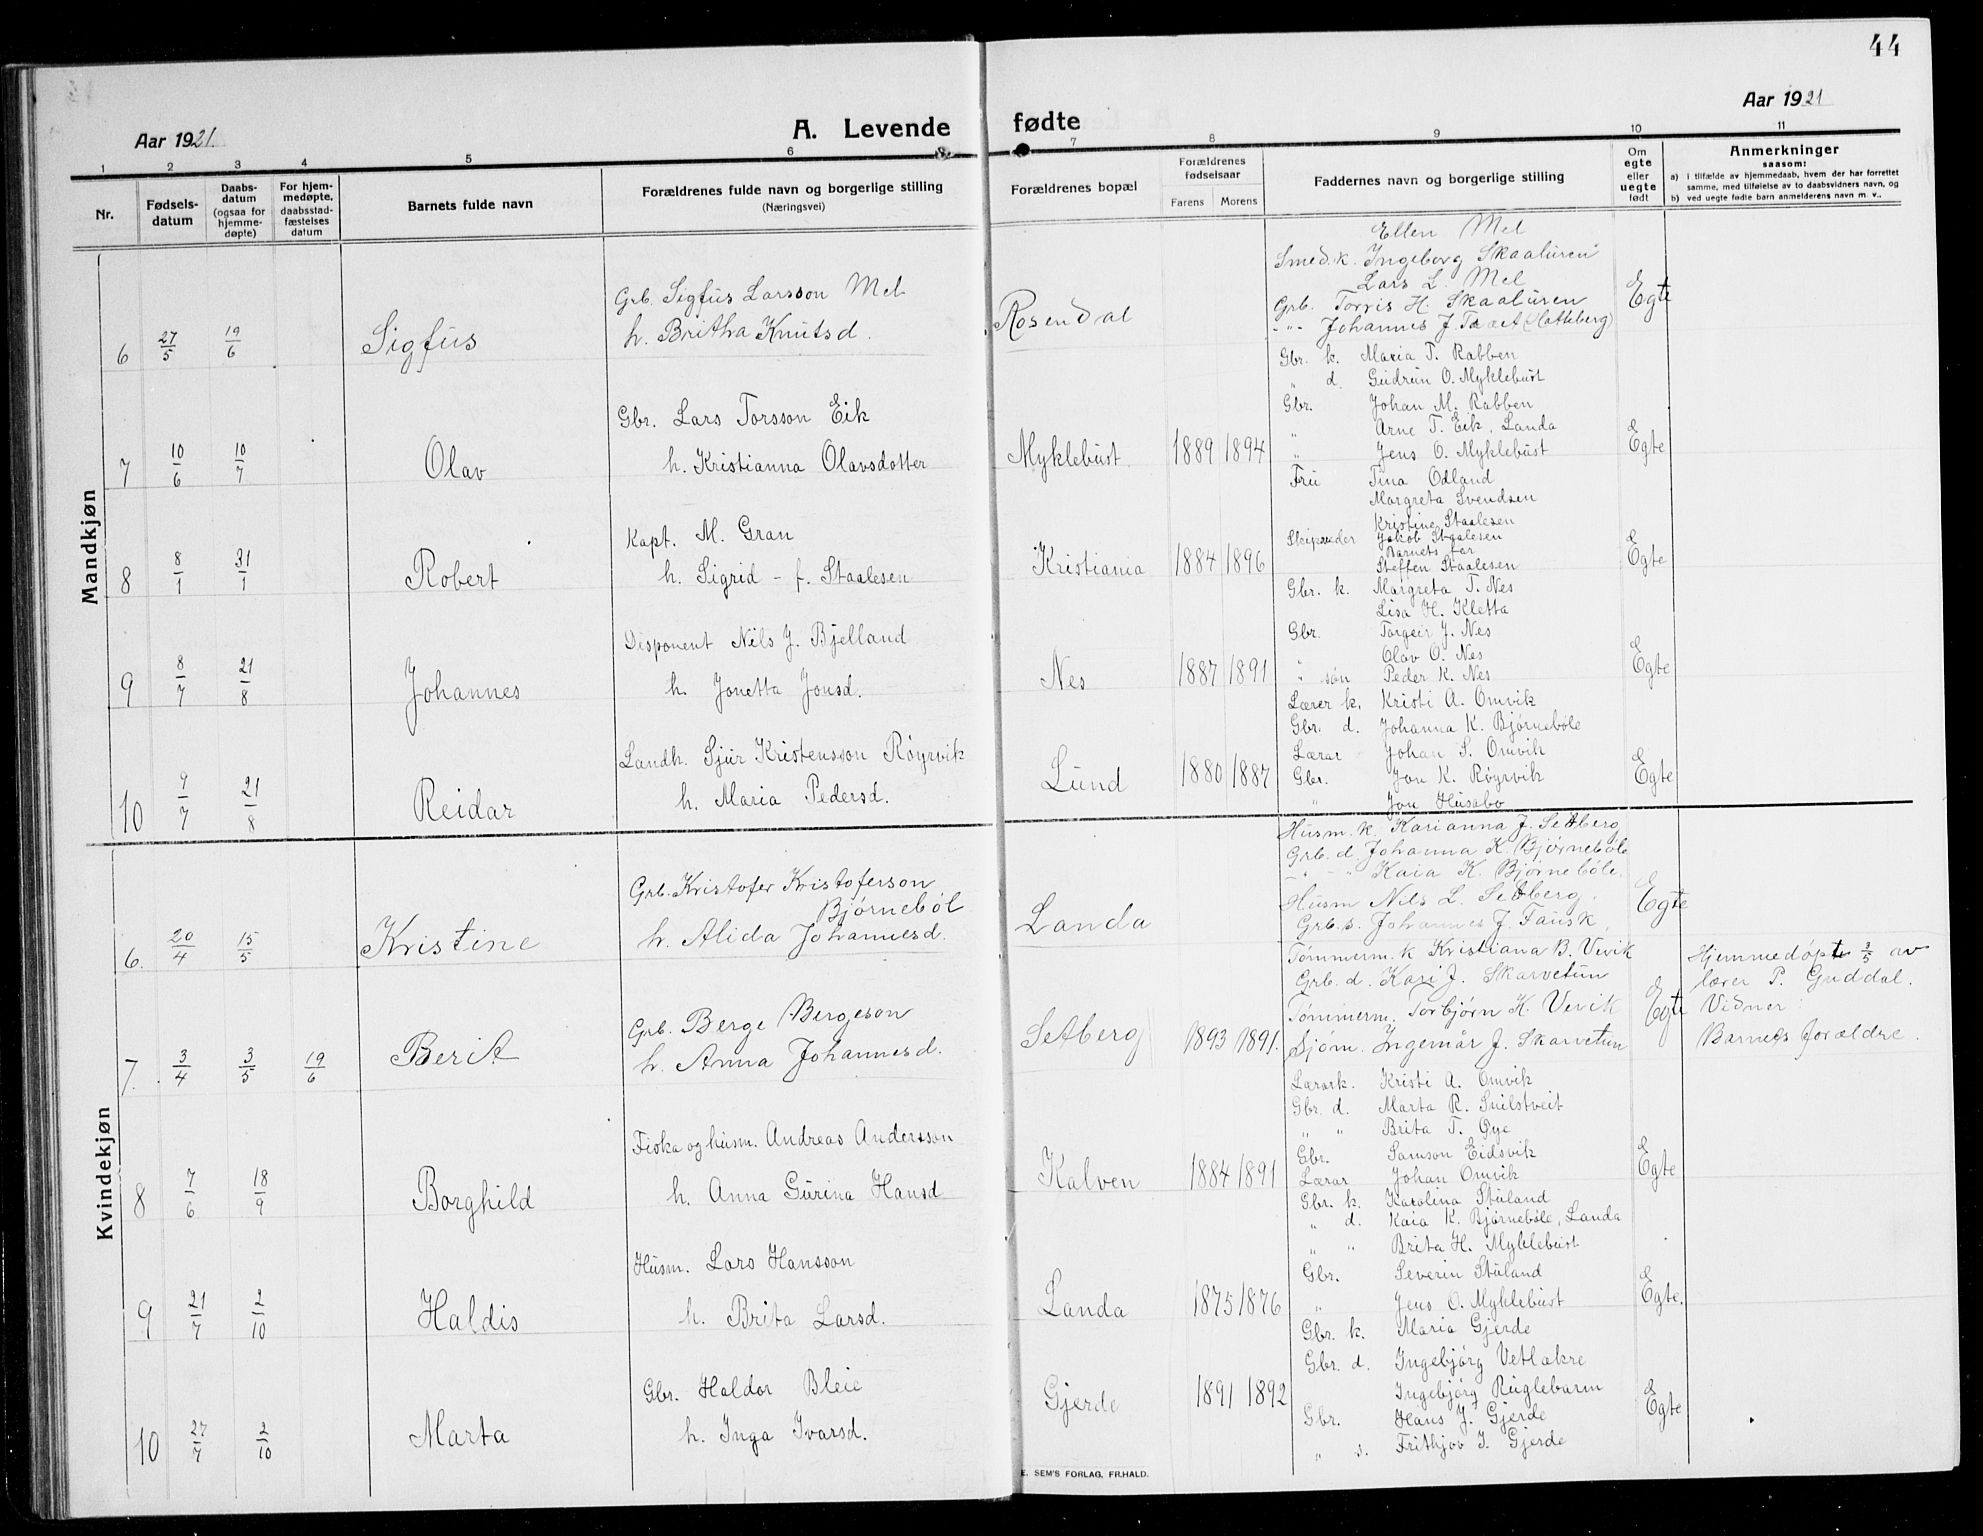 44
Aar 1921.
A. Levende fødte
Aar 1921
1 2 3 4 5 6 7 8 9 10 11
Nr.
Fødsels-
datum
Daabs-
datum
(ogsaa for
hjemme-
døpte)
For hjem-
medøpte,
daabsstad-
fæstelses
datum
Barnets fulde navn
Forældrenes fulde navn og borgerlige stilling
(Næringsvei)
Forældrenes bopæl
Forældrenes
fødselsaar
Farens Morens
Faddernes navn og borgerlige stilling
Om
egte
eller
uegte
født
Anmerkninger
saasom:
a) i tilfælde av hjemmedaab, hvem der har forrettet
samme, med tilføielse av to daabsvidners navn, og
b) ved uegte fødte barn anmelderens navn m. v.,
Mandkjøn
6 27/5 19/6 Sigfus
Grb. Sigfus Larsson Mel
h. Britha Knutsd.
Rosendal
Ellen Mel
Smed.k. Ingeborg Skaaluren
Lars L. Mel
Grb. Torris H. Skaaluren
-"- Johannes J. Tveit (Hatteberg)
Egte
7 10/6 10/7 Olav
Gbr. Lars Torsson Eik
h. Kristianna Olavsdotter
Myklebust. 1889 1894
Gbr. k. Maria T. Rabben
" d. Gudrun O. Myklebust
Gbr. Johan M. Rabben
" Arne T. Eik, Landa
" Jens O. Myklebust
Egte
8 8/1 31/1 Robert
Kapt. M. Gran
h. Sigrid - f. Staalesen
Kristiania 1884 1896
Fru Tina Odland
Margreta Svendsen
Kristine Staalesen
Skipsreder Jakob Staalesen
Barnets far
Steffen Staalesen
Egte
9 8/7 21/8 Johannes
Disponent Nils J. Bjelland
h. Jonetta Jonsd.
Nes 1887 1891
Gbr. k. Margreta T. Nes
Lisa H. Kletta
Gbr. Torgeir J. Nes
" Olav O. Nes
" søn Peder K. Nes
Egte
10 9/7 21/8 Reidar
Landh. Sjur Kristensson Røyrvik
h. Maria Pedersd.
Lund 1880 1887
Lærer k. Kristi A. Omvik
Gbr. d. Johanna K. Bjørnebøle
Lærar Johan S. Omvik
Gbr. Jon K. Røyrvik
" Jon Husabø
Egte
Kvindekjøn
6. 20/4 15/5 Kristine
Grb. Kristofer Kristoferson
Bjørnebøl
h. Alida Johannesd.
Landa
Husm. k. Karianna J. Setberg
Grb. d. Johanna K. Bjørnebøle
-"- -"- Kaia K. Bjørnebøle.
Husm Nils L. Setberg.
Grb.s. Johannes J. Fausk.
Egte
7. 3/4 3/5 19/6 Berit
Grb. Berge Bergeson
h. Anna Johannesd.
Setberg 1893 1891.
Tømmerm. k Kristiana B. Vevik
Grb. d. Kari J. Skarvetun
Tømmerm. Torbjørn K. Vevik
Sjøm. Ingemår J. Skarvetun
Egte
Hjemmedøpt 3/5 av
lærer P. Guddal.
Vidner:
Barnets forældre.
8 7/6 18/9 Borghild
Fiska og husm. Andreas Andersson
h. Anna Gurina Hansd
Kalven 1884 1891
Lærark. Kristi A. Omvik
Gbr. d. Marta R. Snilstveit
" " Brita T. Øye
Gbr. Samson Eidsvik
Lærar Johan Omvik
Egte
9 21/7 2/10 Haldis
Husm. Lars Hansson
h. Brita Larsd.
Landa 1875 1876
Gbr. k. Karolina Stuland
" d. Kaia K. Bjørnebøle, Landa
" " Brita H. Myklebust
Gbr. Severin Stuland
" Jens O. Myklebust
Egte.
10 27/7 2/10 Marta
Gbr. Haldor Bleie
h. Inga Ivarsd.
Gjerde 1891 1892
Gbr. k. Maria Gjerde
Gbr. d. Ingebjørg Vetlakre
Ingebjørg Ruglebarm
Gbr. Hans J. Gjerde
" s. Frithjov I. Gjerde
Egte
E. SEM'S FORLAG, FR.HALD.